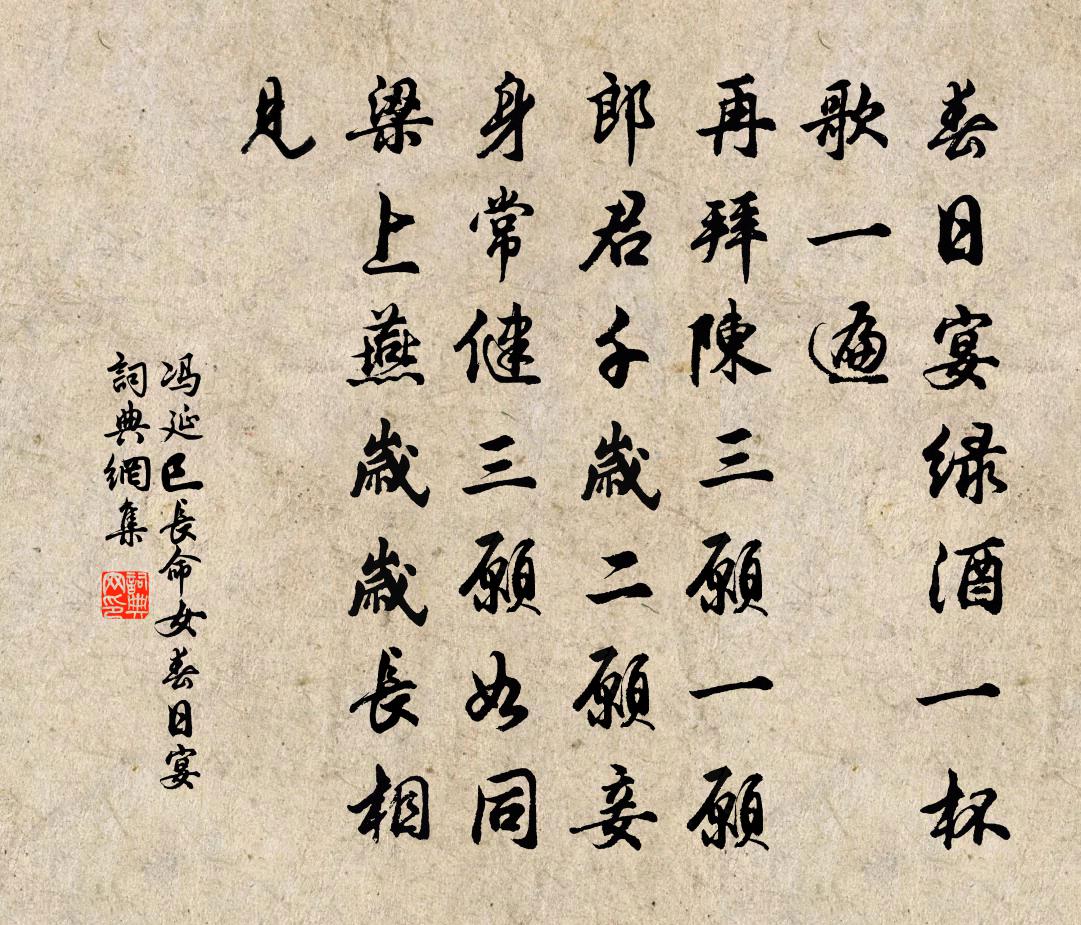 春日宴绿酒一杯
歌一遍
再拜陳三願一願
郎君千歲二願妾
身常健三願如同
梁上燕歲歲長相
見
冯延巳長命女春日宴
詞典網集
詞典
网印